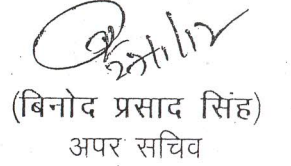 (बिनोद प्रसाद सिंह)
अपर सचिव